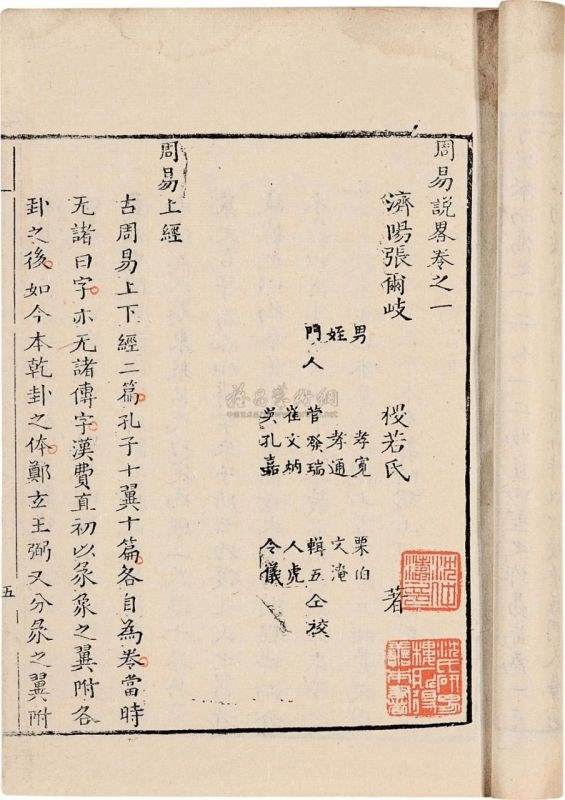 周易說畧卷之一
濟陽張爾岐 稷若氏 著
男 孝寬 栗伯
姪 孝通 文淹
門人 管發瑞 輯五 仝校
崔文炳 人虎
吳孔嘉 令儀
周易上經
古周易上下經二篇孔子十翼十篇各自為卷當時
无諸曰字亦无諸傳字漢費直初以彖象之翼附各
卦之後如今本乾卦之体鄭玄王弼又分彖之翼附
五